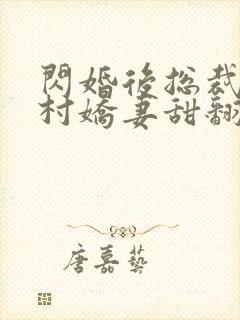 閃婚後總裁
村嬌妻甜翻
唐嘉藝